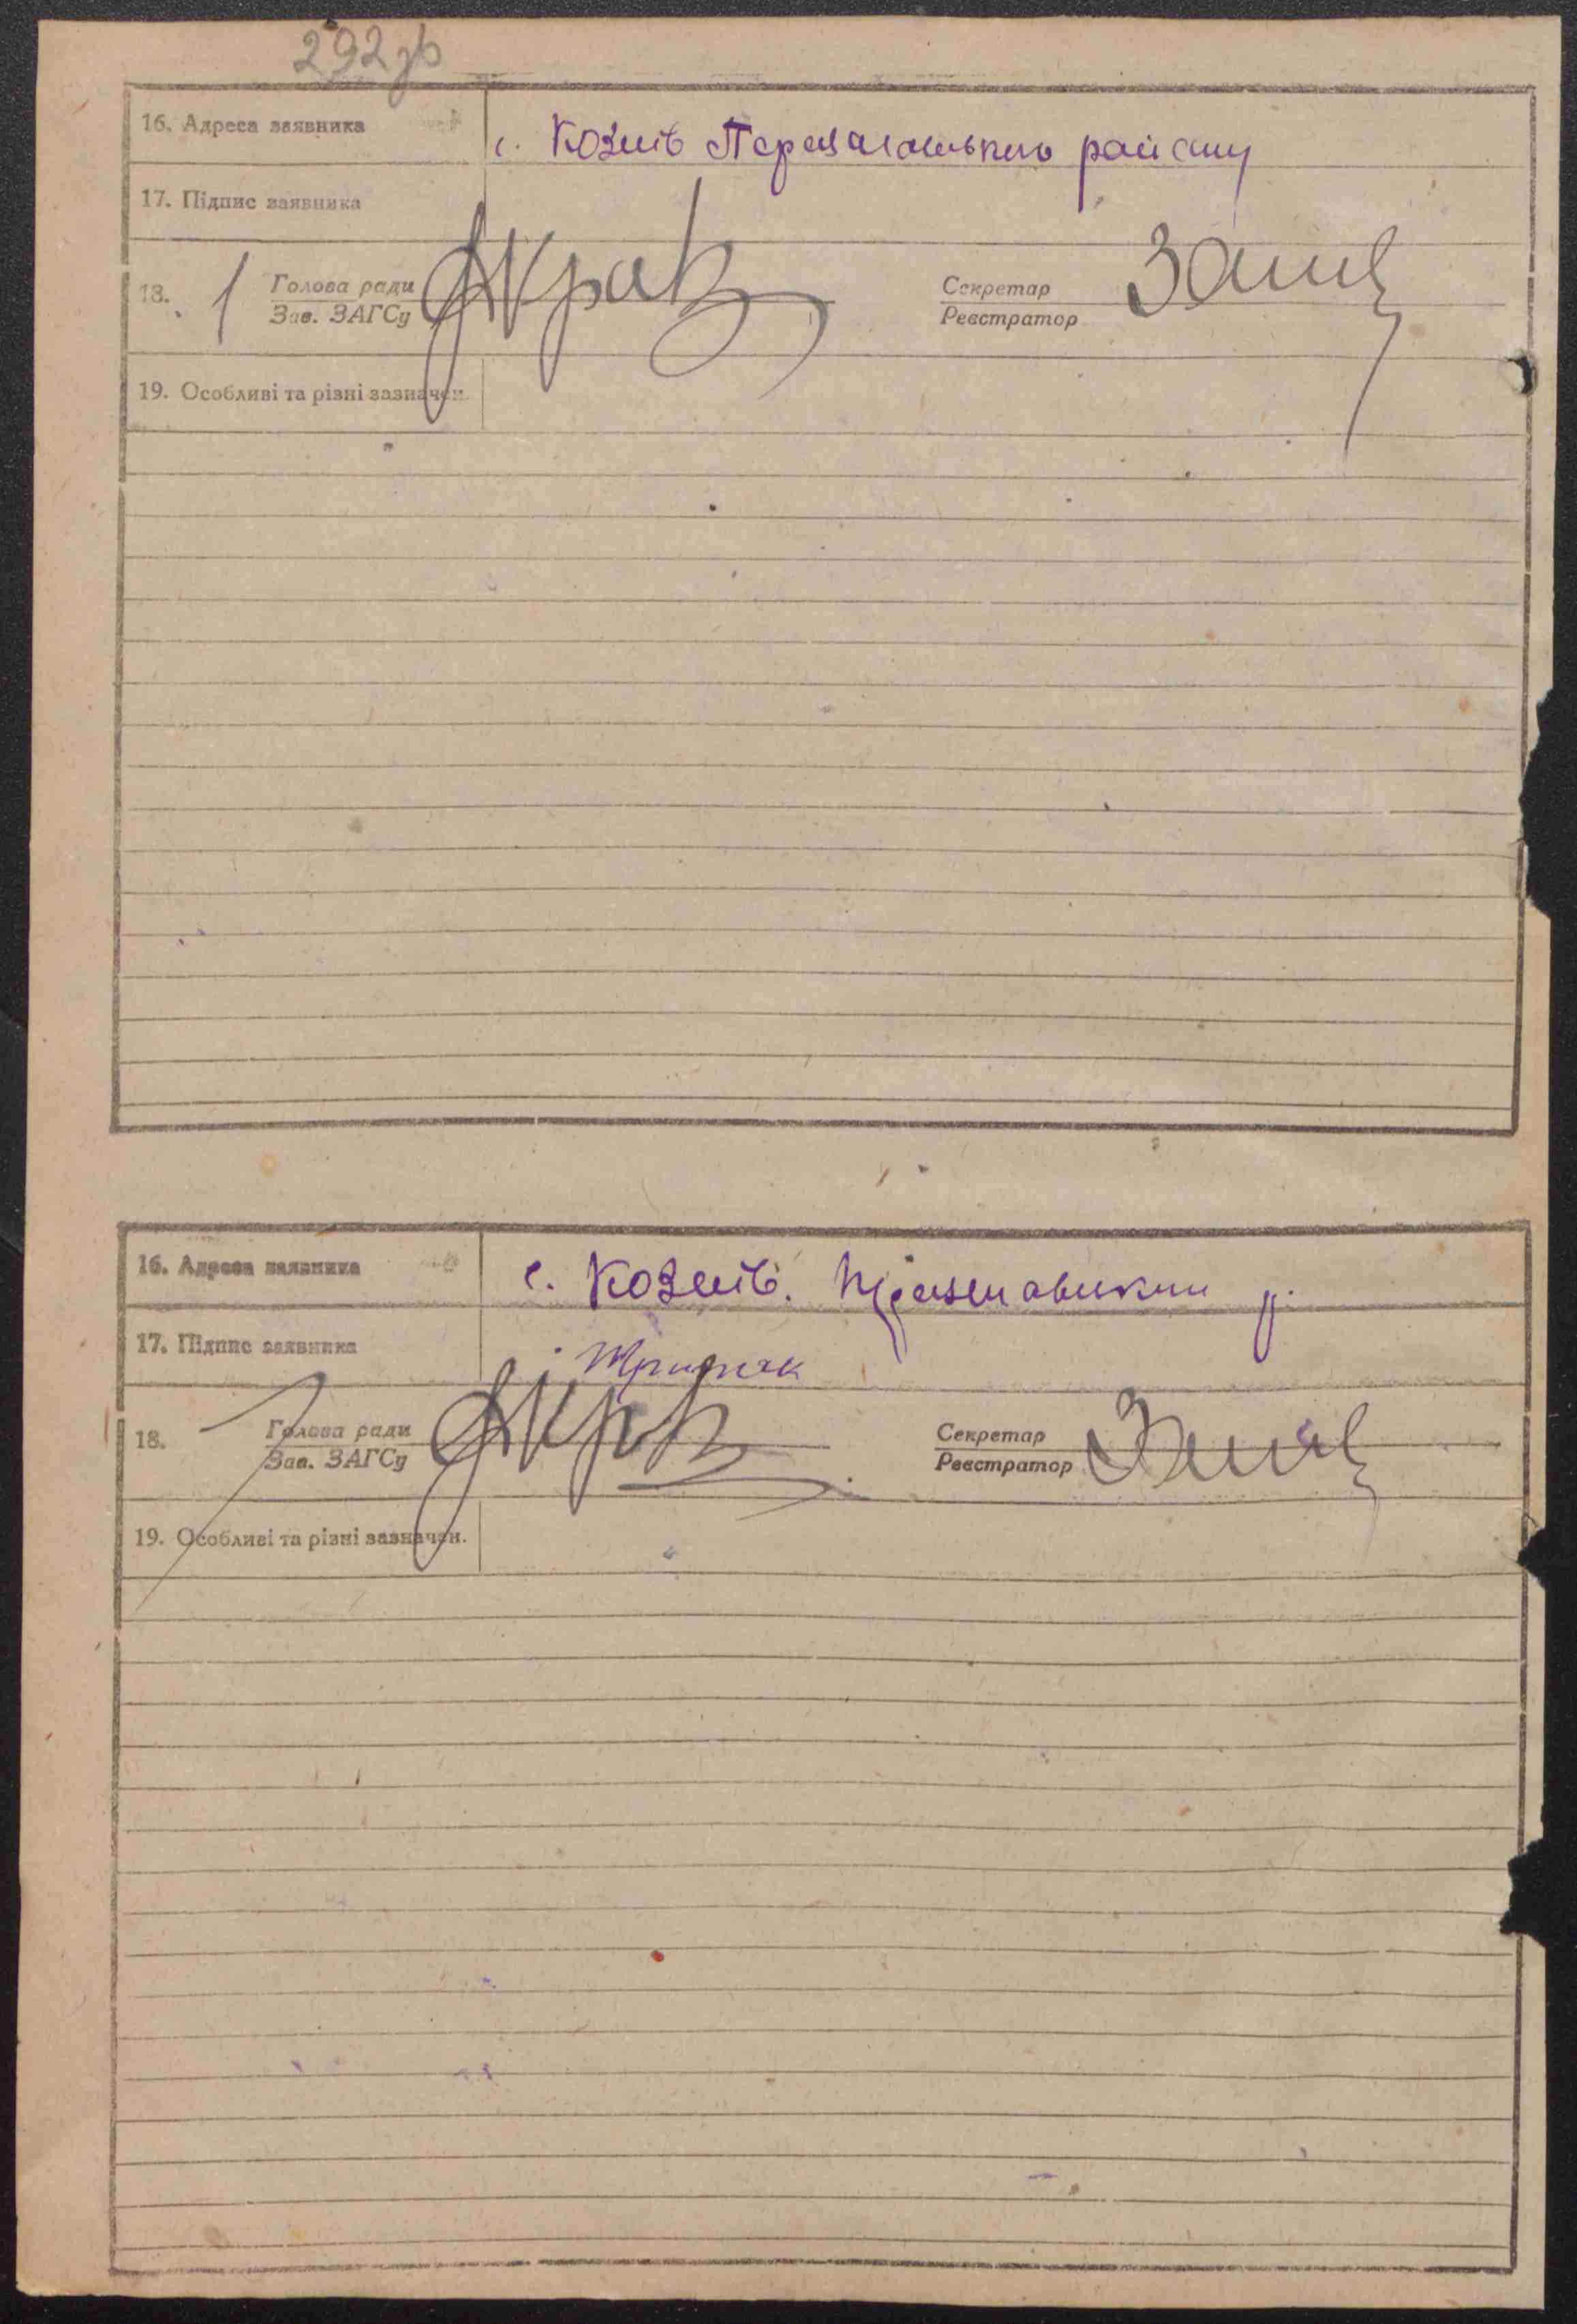 292зв
16. Адреса заявника с. Козлів Переяславського району
17. Підпис заявника
18. Голова ради Секретар
Зав. ЗАГСу Реєстратор
19. Особливі та різні зазначен.
16. Адреса заявника с. Козлів.
17. Підпис заявника
18. Голова ради Секретар
Зав. ЗАГСу Реєстратор
19. Особливі та різні зазначен.